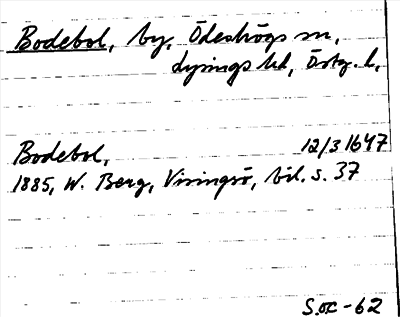 Bodebol, by, Ödeshögs sn,
Lysings hd, Östg. l,
Bodebol, 12/3 1647
1885, W. Berg, Visingsö, bil. s. 37
S.oc -62